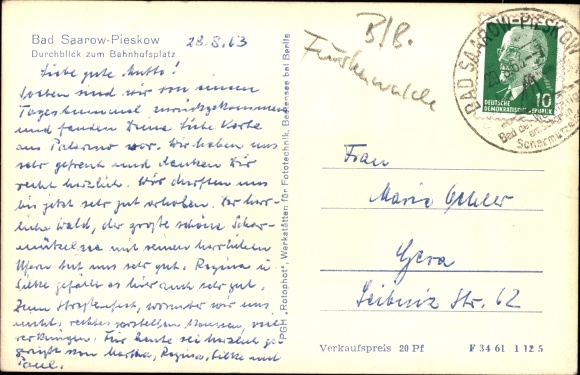 Bad Saarow-Pieskow
Durchblick zum Bahnhofsplatz
28.8.63
Liebe gute Mutti!
Soeben sind wir von unserem
Tagesbummel zurückgekommen
und fanden Deine liebe Karte
aus vor. Wir haben uns
sehr gefreut und danken Dir
recht herzlich. Wir durften uns
bis jetzt sehr gut erholen. Der herr-
liche Wald, der große schöne Schar-
mützelsee mit seinen herrlichen
Ufern tut uns sehr gut. Regina u.
Silke gefällt es hier auch sehr gut.
Zum
nicht rechtes vorstellen können, viel
Für heute sei herzlich ge-
grüßt von Martha, Regina, Silke und
Paul.
"PGH „Rotophot", Werkstätten für Fototechnik, Bestensee bei Berlin
B/B.
Fürstenwalde
BAD SAAROW-PIESKOW
DEUTSCHE
DEMOKRATISCHE REPUBLIK
10
Bad
am
Scharmützelsee
Frau
Maria
Gera
Leibniz Str. 62
Verkaufspreis 20 Pf
F 34 61 1 12 5